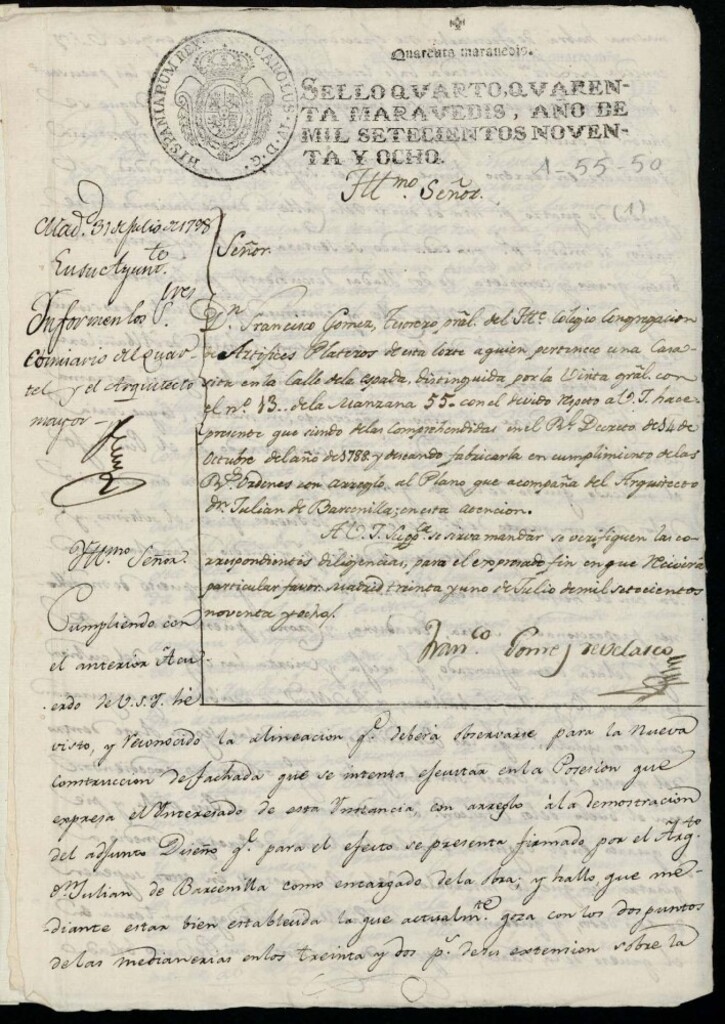 Quarenta maravedis.
HISPANIARUM REX. CAROLUS. IV. D. G.
SELLO QVARTO, QVAREN-
TA MARAVEDIS, AÑO DE
MIL SETECIENTOS NOVEN-
TA Y OCHO.
1-55-50
(1)
Illmo. Señor.
Madd. 31 de Julio de 1798
En su Ayuntto.
Informen los Sres.
Comisario del Quar-
tel y el Arquitecto
mayor
Señor.
Dn. Francisco Gomez, Tesorero gral. del Ille. Colegio Congregacion
de Artifices Plateros de esta Corte a quien pertenece una Casa
sita en la Calle de la espada, distinguida por la Visita gral. con
el nº. 13.. de la Manzana 55. con el devido respeto a V. I. hace
presente que siendo de las comprehendidas en el Rl. Decreto de 14 de
Octubre del año de 1788 y deseando fabricarla en cumplimiento de las
Rs. Ordenes con arreglo, al Plano que acompaña del Arquitecto
Dn. Julian de Barcenilla; en esta atencion.
A V. I. Suppca. se sirva mandar se verifiquen las co-
rrespondientes diligencias, para el expresado fin en que Recivirá
particular favor. Madrid treinta y uno de Julio de mil setecientos
noventa y ocho.
Franco. Gomez de Velasco
Illmo. Señor.
Cumpliendo con
el anterior Acu-
erdo de V.S.I. he
visto, y reconocido la alineacion qe. deberá observarse para la Nueva
Construccion de fachada que se intenta ejecutar en la Posesion que
expresa el Interesado de esta Instancia, con arreglo à la demostracion
del adjunto Diseño qe. para el efecto se presenta firmado por el Arqto.
Dn. Julian de Barcenilla como encargado de la obra; y hallo, que me-
diante estar bien establecida la que actualmte. goza con los dos puntos
de las medianerias en los treinta y dos ps. de su extension sobre la